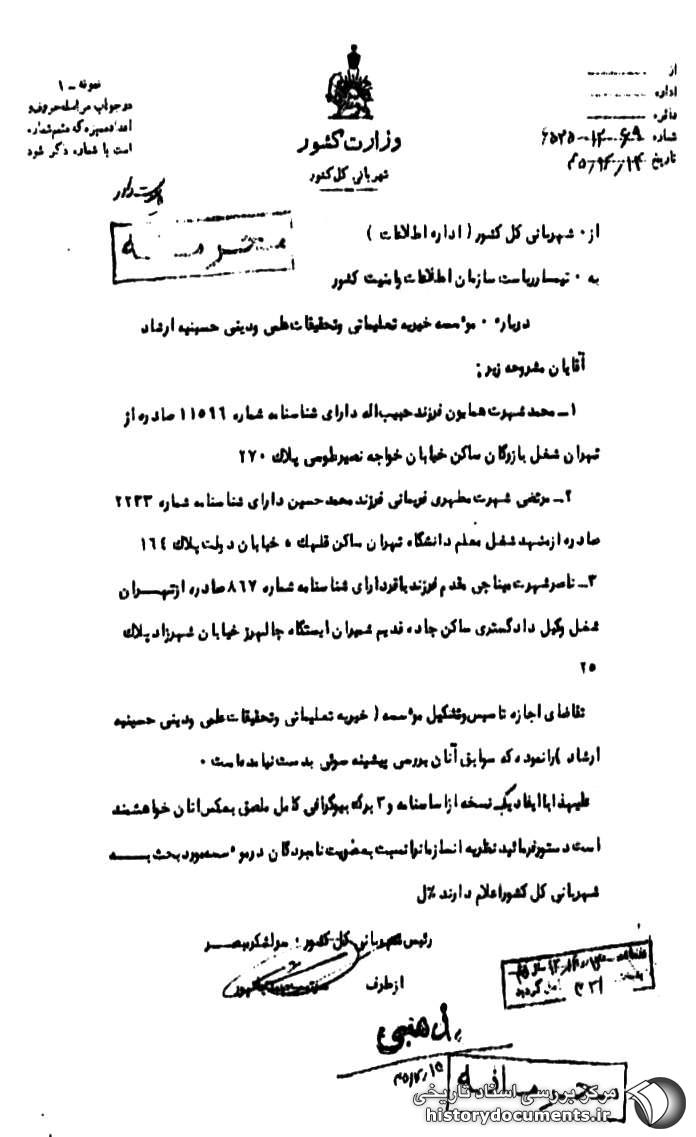 نمونه - ۱
در جواب مراسله حروف و
اعداد ممیزه که متمم شماره
است با شماره ذکر شود
وزارت کشور
شهربانی کل کشور
از
اداره
دائره
شماره
تاریخ
محرمانه
از ۰ شهربانی کل کشور ( اداره اطلاعات )
به ۰ تیمسار ریاست سازمان اطلاعات و امنیت کشور
درباره ۰ موسسه خیریه تعلیماتی و تحقیقات علمی و دینی حسینیه ارشاد
آقایان مشروحه زیر :
۱- محمد شهرت همایون فرزند حبیب اله دارای شناسنامه شماره ۱۱۵۹۶ صادره از
تهران شغل بازرگان ساکن خیابان خواجه نصیر طوسی پلاک ۲۷۰
۲- مرتضی شهرت مطهری فریمانی فرزند محمد حسین دارای شناسنامه شماره ۲۲۳۳
صادره از مشهد شغل معلم دانشگاه تهران ساکن قلهک ۰ خیابان دولت پلاک ۱۶۴
۳- ناصر شهرت میناچی مقدم فرزند باقر دارای شناسنامه شماره ۸۶۷ صادره از تهران
شغل وکیل دادگستری ساکن جاده قدیم شمیران ایستگاه چالهرز خیابان شهرزاد پلاک
۲۵
تقاضای اجازه تاسیس و تشکیل موسسه ( خیریه تعلیماتی و تحقیقات علمی و دینی حسینیه
ارشاد ) را نموده که سوابق آنان بررسی پیشینه سوئی بدست نیامده است ۰
علیهذا با ایفاد یک نسخه از اساسنامه و ۳ برگه بیوگرافی کامل ملصق بعکس آنان خواهشمند
است دستور فرمائید نظریه آنسازمان را نسبت به عضویت نامبردگان در موسسه مورد بحث به
شهربانی کل کشور اعلام دارند %ل
رئیس شهربانی کل کشور ۰ سرلشکر مبصر
از طرف
محرمانه
مرکز بررسی اسناد تاریخی
historydocuments.ir